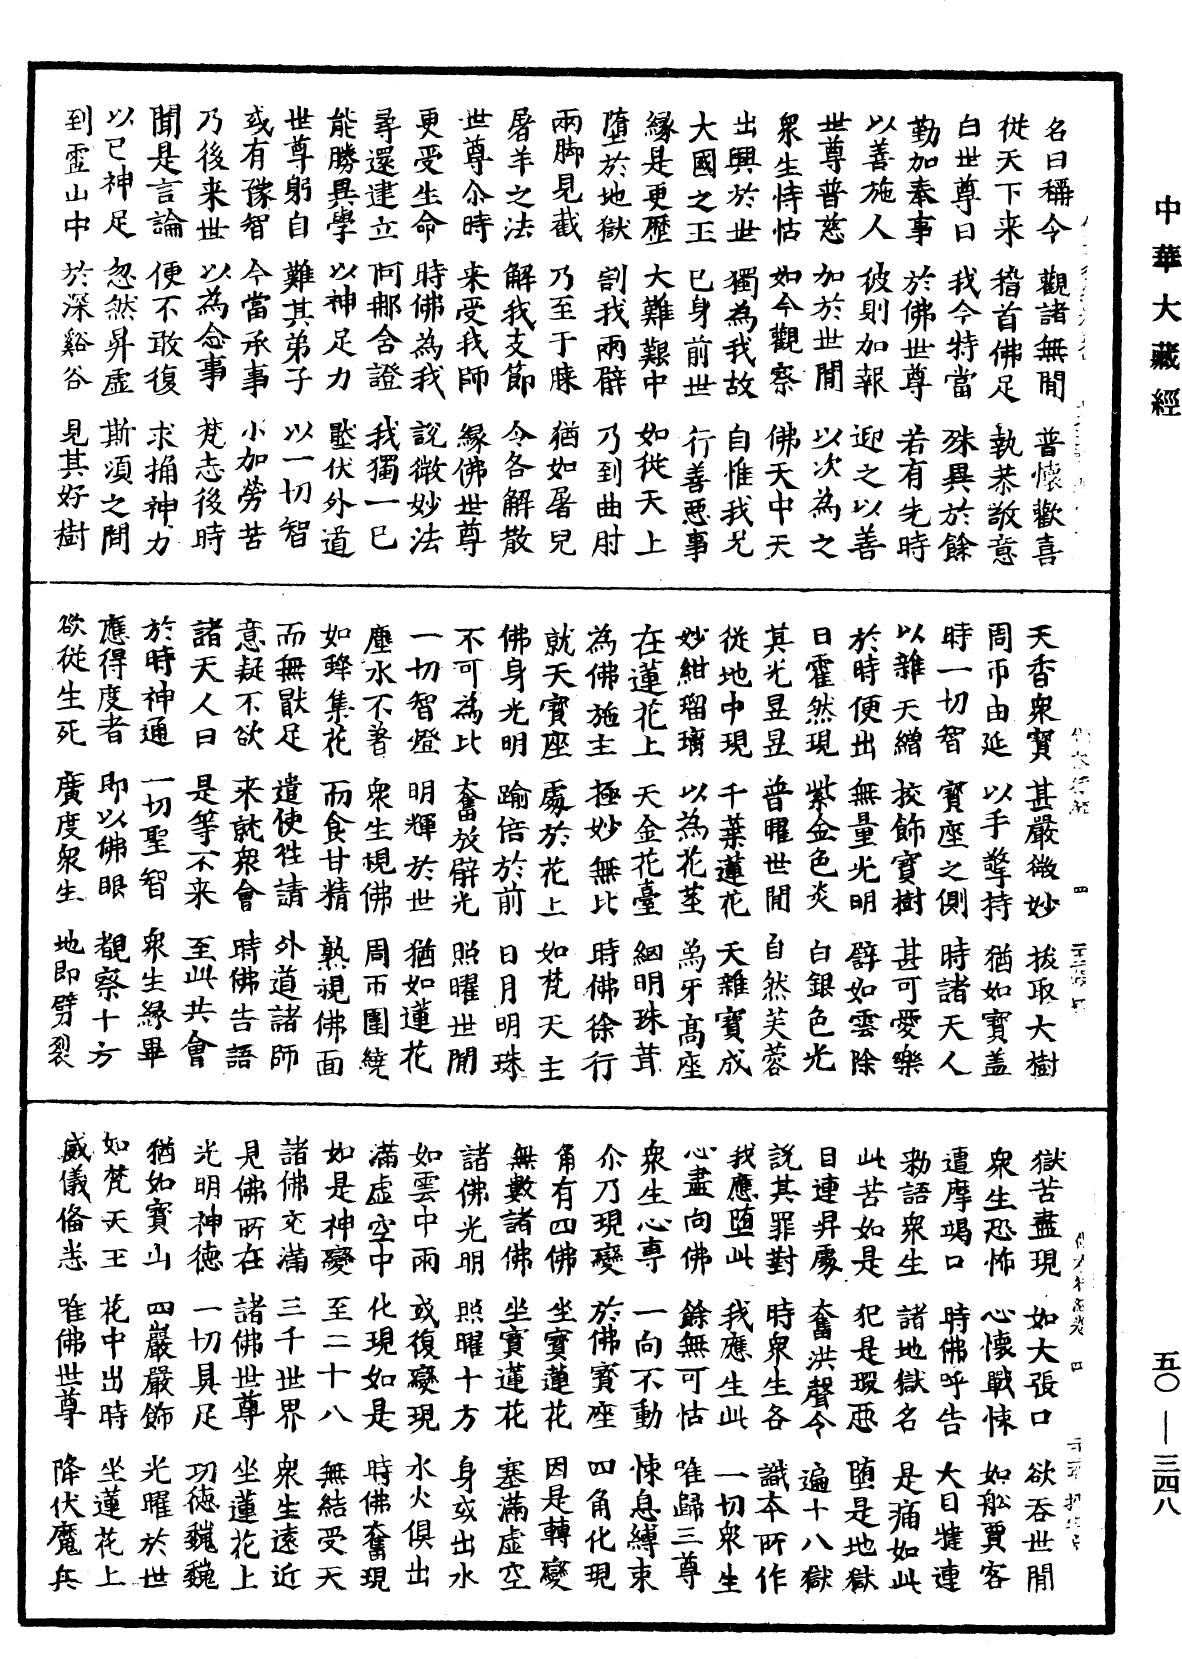 中華大藏經
名曰稱今 觀諸無間 普懷歡喜
從天下来 稽首佛足 執恭敬意
白世尊曰 我今特當 殊異於餘
勤加奉事 於佛世尊 若有先時
以善施人 彼則加報 迎之以善
世尊普慈 加於世間 以次為之
衆生恃怙 如今觀察 佛天中天
出興於世 獨為我故 自惟我兄
大國之王 已身前世 行善惡事
緣是更歷 大難艱中 如從天上
墮於地獄 割我兩臂 乃到曲肘
兩脚見截 乃至于膝 猶如屠兒
屠羊之法 解我支節 今各解散
世尊尒時 来受我師 緣佛世尊
更受生命 時佛為我 說微妙法
尋還建立 阿那含證 我獨一已
能勝異學 以神足力 壓伏外道
世尊躬自 難其弟子 以一切智
或有豫智 今當承事 小加勞苦
乃後来世 以為念事 梵志後時
聞是言論 便不敢復 求捅神力
以已神足 忽然昇虛 斯須之間
到靈山中 於深谿谷 見其好樹
天香衆寶 甚嚴微妙 拔取大樹
周帀由延 以手擎持 猶如寶盖
時一切智 寶座之側 時諸天人
以雜天繒 挍飾寶樹 甚可愛樂
於時便出 無量光明 辟如雲除
日霍然現 紫金色炎 白銀色光
其光昱昱 普曜世間 自然芙蓉
從地中現 千葉蓮花 天雜寶成
妙紺瑠璃 以為花莖 為牙高座
在蓮花上 天金花臺 絪明珠茸
為佛施主 極妙無比 時佛徐行
就天寶座 處於花上 如梵天主
佛身光明 踰倍於前 日月明珠
不可為比 奮放辟光 照曜世間
一切智燈 明輝於世 猶如蓮花
塵水不著 衆生視佛 周帀圍繞
如蜂集花 而食甘精 熟視佛面
而無猒足 遣使往請 外道諸師
意疑不欲 来就衆會 時佛告語
諸天人曰 是等不来 至此共會
於時神通 一切聖智 衆生緣畢
應得度者 即以佛眼 覩察十方
欲從生死 廣度衆生 地即劈裂
獄苦盡現 如大張口 欲吞世間
衆生恐怖 心懷戰悚 如舩賈客
遭摩竭口 時佛呼告 大目犍連
勑語衆生 諸地獄名 是痛如此
此苦如是 犯是瑕惡 墮是地獄
目連昇處 奮洪聲令 遍十八獄
說其罪對 時衆生各 識本所作
我應墮此 我應生此 一切衆生
心盡向佛 餘無可怙 唯歸三尊
衆生心專 一向不動 悚息縛束
尒乃現變 於佛寶座 四角化現
角有四佛 坐寶蓮花 因是轉變
無數諸佛 坐寶蓮花 塞滿虛空
諸佛光明 照曜十方 身或出水
如雲中雨 或復變現 水火俱出
滿虛空中 化現如是 時佛奮現
如是神變 至二十八 無結受天
諸佛充滿 三千世界 衆生遠近
見佛所在 諸佛世尊 坐蓮花上
光明神德 一切具足 功德巍巍
猶如寶山 四嚴嚴飾 光曜於世
如梵天王 花中出時 坐蓮花上
威儀俻悉 唯佛世尊 降伏魔兵
五〇—三四八